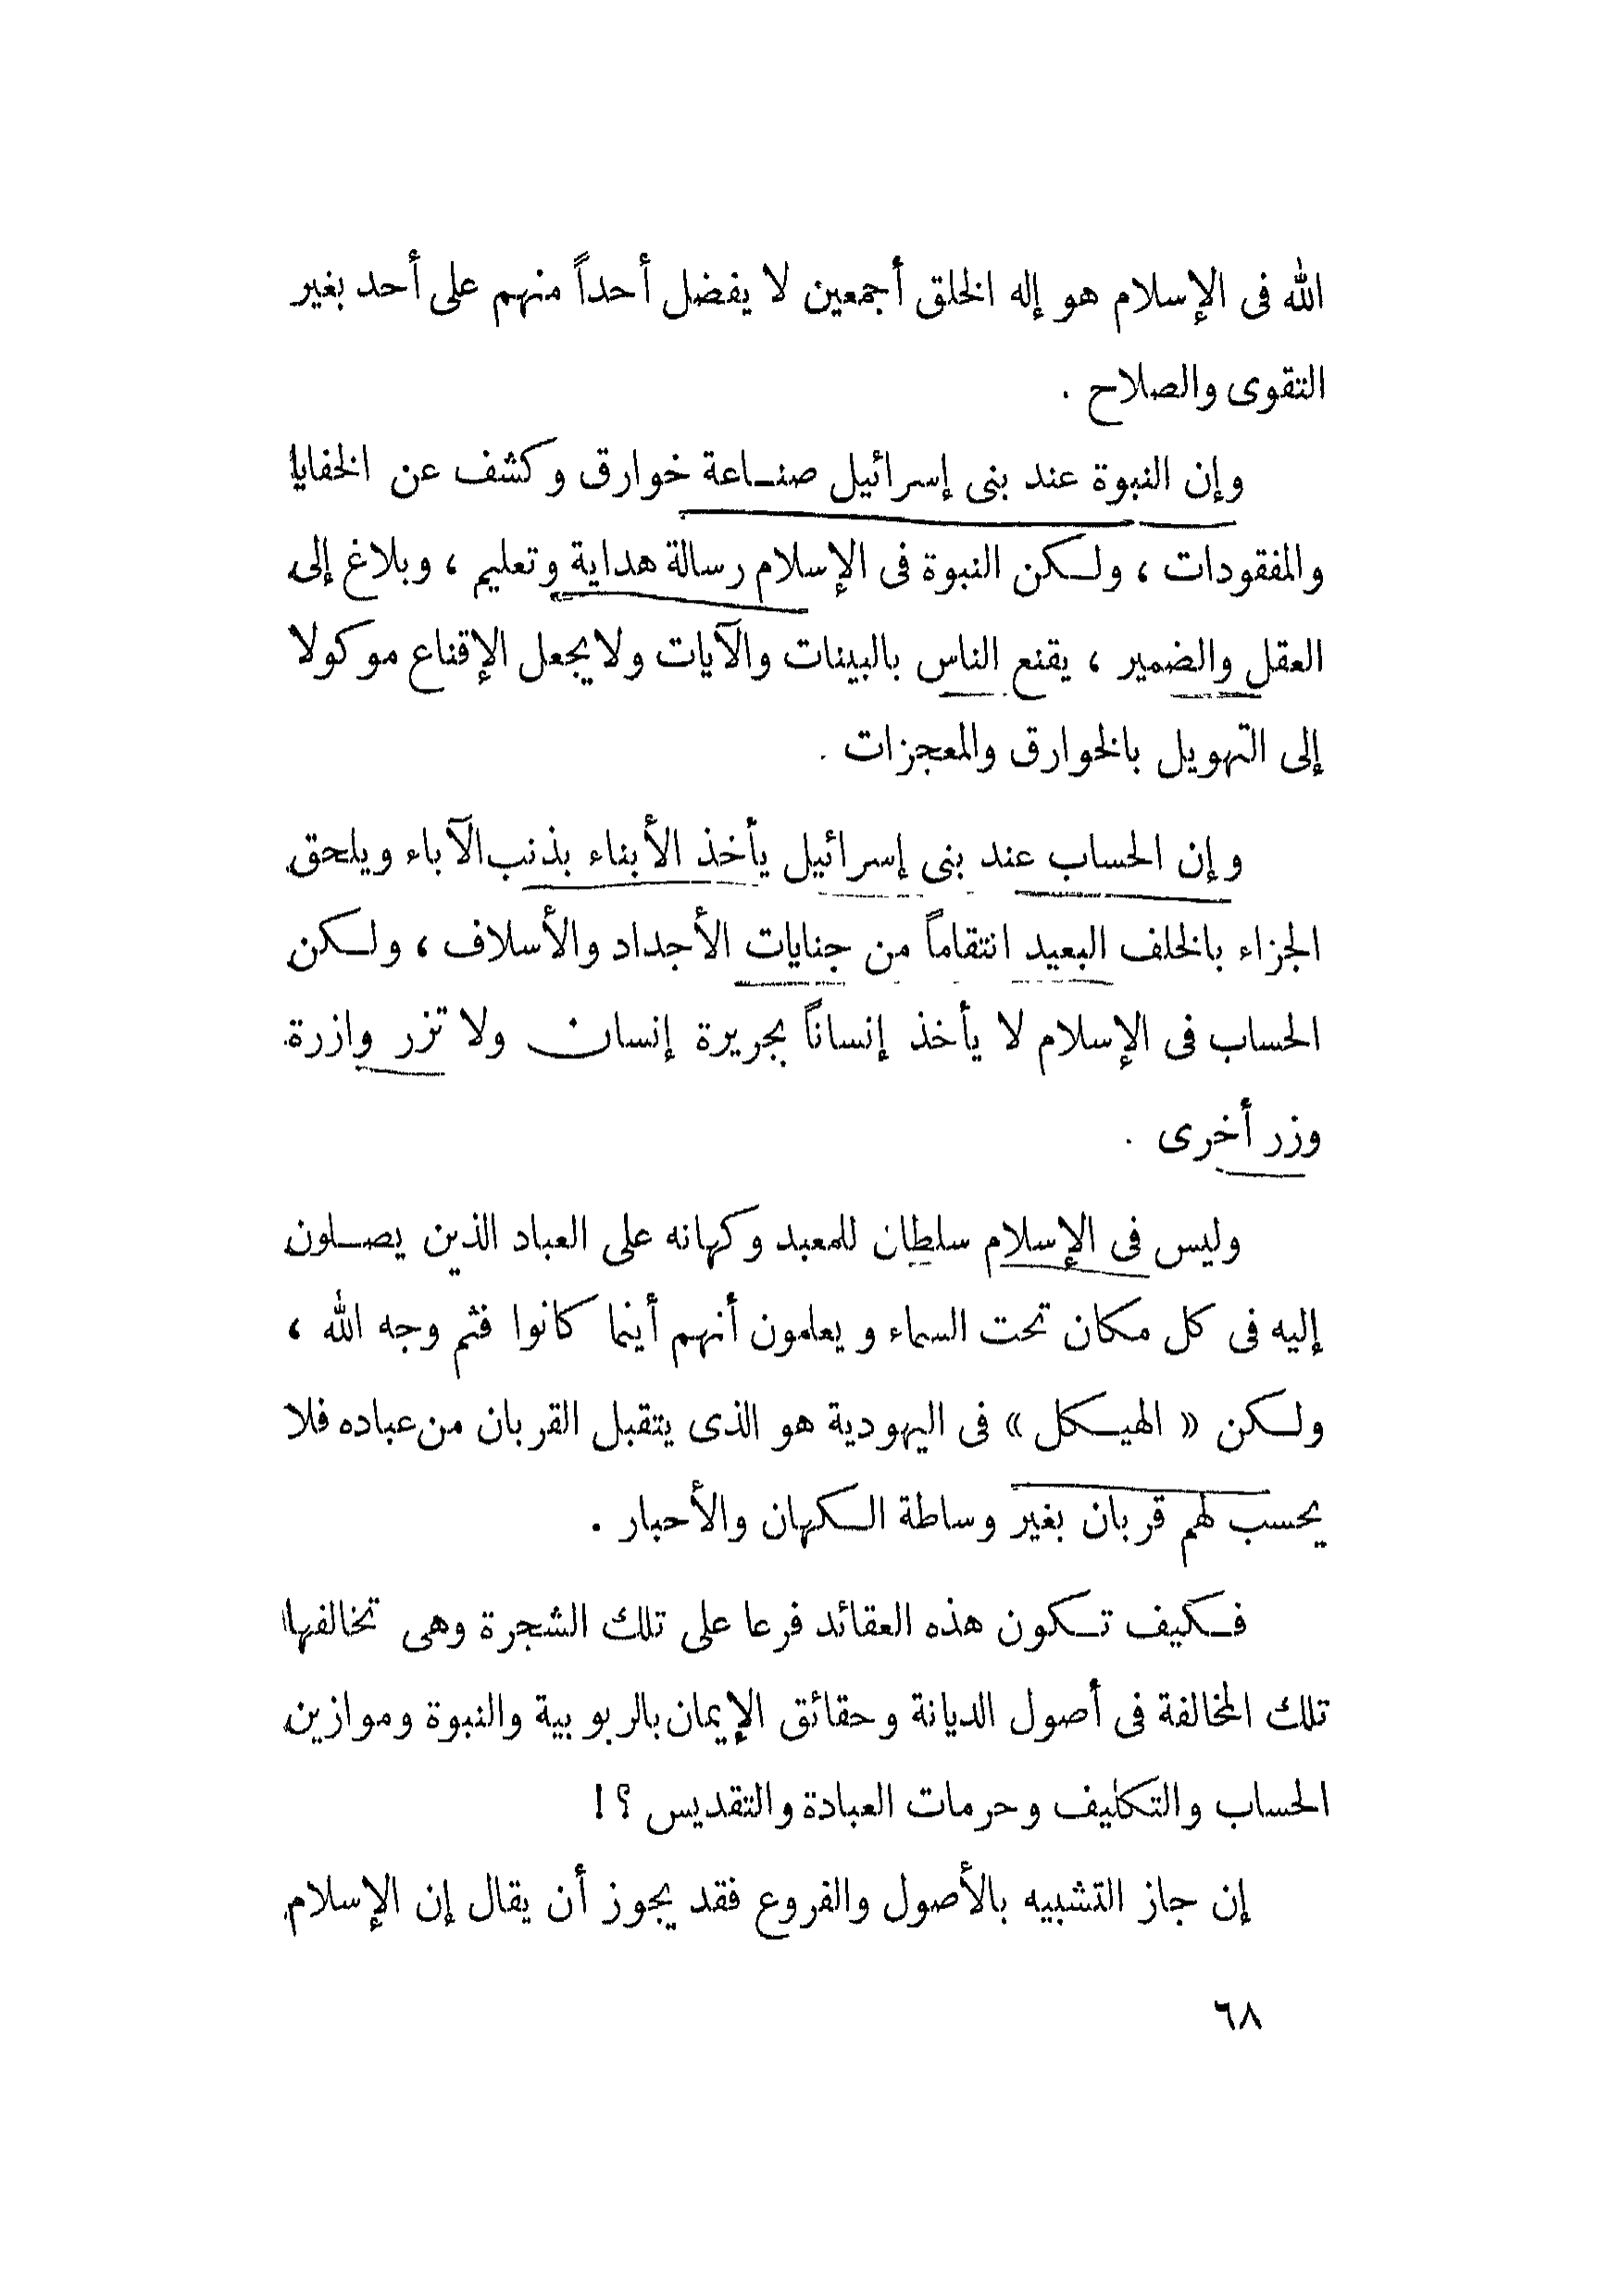 الله فى الإسلام هو إله الخلق أجمعين لا يفضل أحداً منهم على أحد بغير
التقوى والصلاح .
وإن النبوة عند بنى إسرائيل صناعة خوارق وكشف عن الخفايا
والمفقودات ، ولكن النبوة فى الإسلام رسالة هداية وتعليم ، وبلاغ إلى
العقل والضمير ، يقنع الناس بالبينات والآيات ولا يجعل الإقناع موكولا
إلى التهويل بالخوارق والمعجزات .
وإن الحساب عند بنى إسرائيل يأخذ الأبناء بذنب الآباء ويلحق
الجزاء بالخلف البعيد انتقاماً من جنايات الأجداد والأسلاف ، ولكن
الحساب فى الإسلام لا يأخذ إنساناً بجريرة إنسان ولا تزر وازرة
وزر أخرى .
وليس فى الإسلام سلطان للمعبد وكهانه على العباد الذين يصلون
إليه فى كل مكان تحت السماء ويعلمون أنهم أينما كانوا فثم وجه الله ،
ولكن « الهيكل » فى اليهودية هو الذى يتقبل القربان من عباده فلا
يحسب لهم قربان بغير وساطة الكهان والأحبار .
فكيف تكون هذه العقائد فرعا على تلك الشجرة وهى تخالفها
تلك المخالفة فى أصول الديانة وحقائق الإيمان بالربوبية والنبوة وموازين
الحساب والتكليف وحرمات العبادة والتقديس ؟!
إن جاز التشبيه بالأصول والفروع فقد يجوز أن يقال إن الإسلام
٦٨